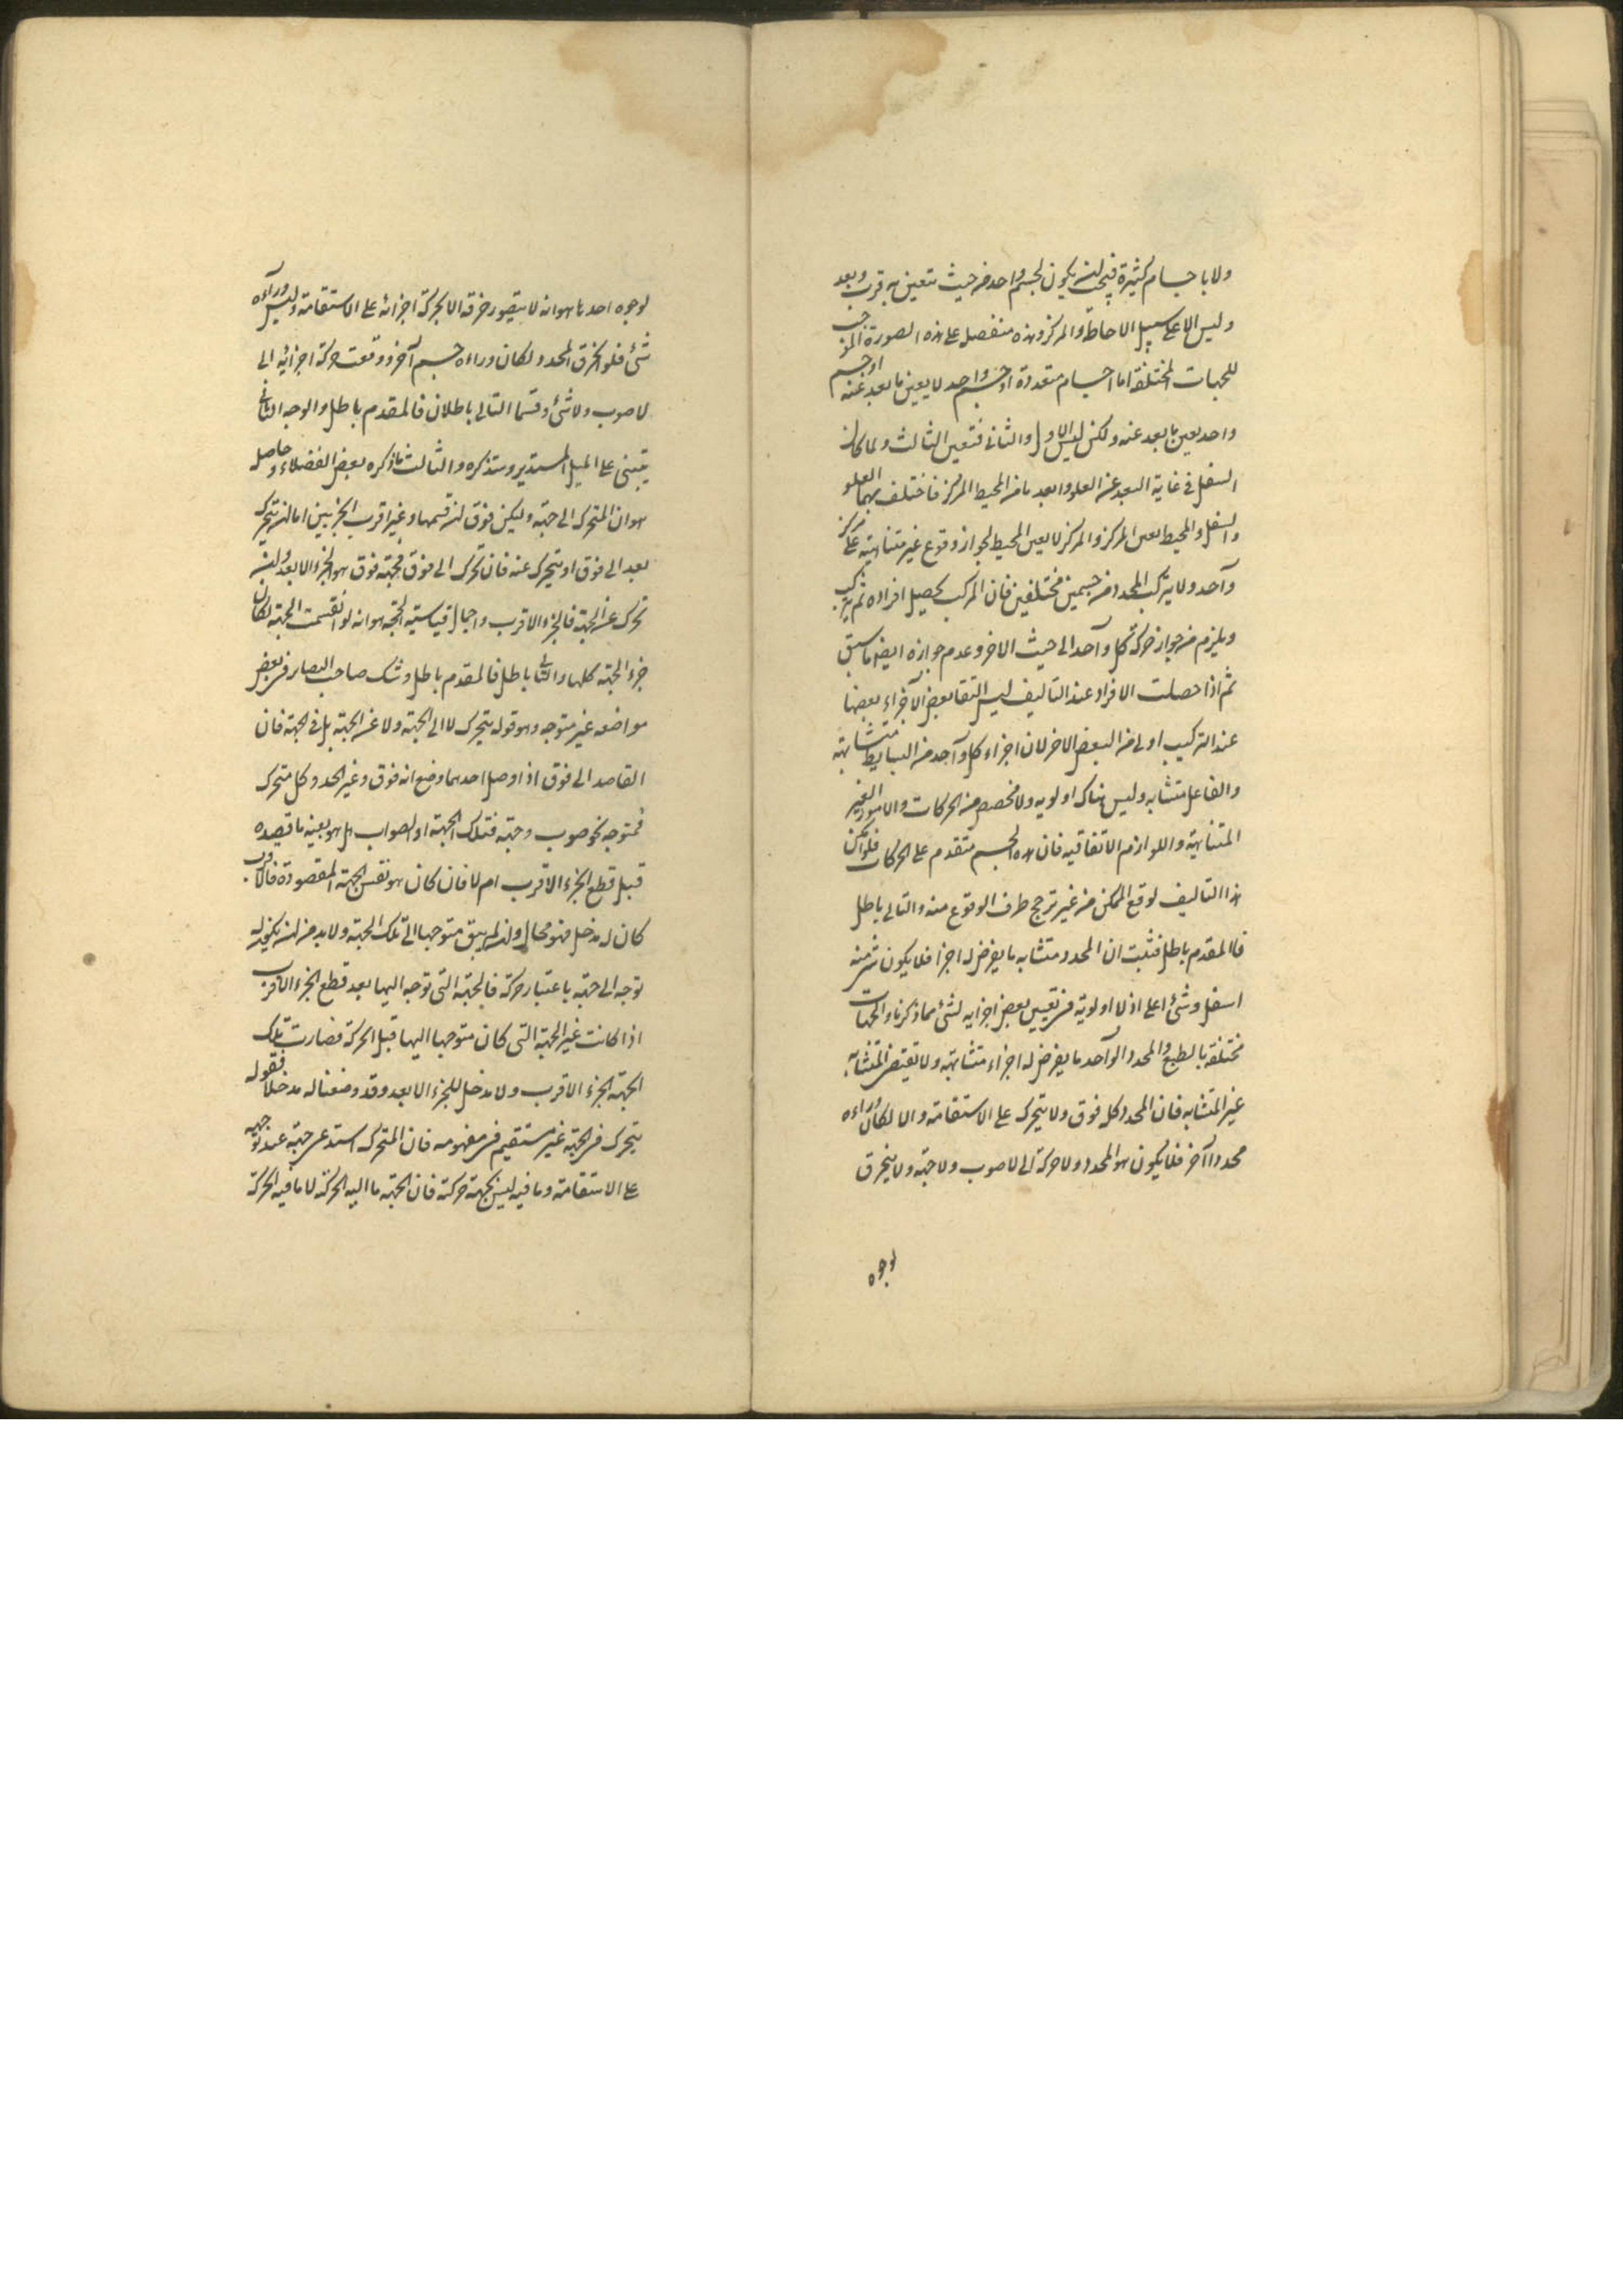 ولا باجسام كثيرة فيجب ان يكون لجسم واحد من حيث تتعين به قرب وبعد
وليس الا على سبيل الاحاطة والمركز وهذه منفصل على هذه الصورة الموجب
للجهات المختلفة اما اجسام متعددة او جسم واحد لا يعين ما بعد عنه او جسم
واحد يعين ما بعد عنه ولكن ليس الاول والثانى فتعين الثالث ولما كان
السفل فى غاية البعد عن العلو وابعد ما من المحيط المركز فاختلف بهما العلو
والسفل والمحيط يعين المركز والمركز لا يعين المحيط لجواز وقوع غير متناهية على مركز
وآحد ولا يتركب المحدد من جسمين مختلفين فان المركب يحصل افراده ثم يتركب
ويلزم من جواز حركة كل وآحد الى حيث الاخر وعدم جوازه ايضا ما سبق
ثم اذا حصلت الافراد عند التاليف ليس التقا بعض الآجزاء بعضها
عند التركيب اولى من البعض الاخر لان اجزاء كل وآحد من البسايط متشابهة
والفاعل متشابه وليس هناك اولويه ولا مخصص من الحركات والامور الغير
المتناهية واللوازم الاتفاقيه فان هذه الجسم متقدم على الحركات فلو امكن
هذا التاليف لوقع الممكن من غير ترجح طرف الوقوع منه والتالى باطل
فالمقدم باطل فثبت ان المحدد متشابه ما يفرض له اجزا فلا يكون شئ منه
اسفل وشئ اعلى اذ لا اولوية فى تعيين بعض اجزايه لشئ مما ذكرنا والجهات
مختلفة بالطبع والمحدد الوآحد ما يفرض له اجزاء متشابهة ولا تقتضى المتشابه
غير المتشابه فان المحدد كله فوق ولا يتحرك على الاستقامة والا لكان وراءه
محددا آخر فلا يكون هو المحدد ولا حركة الى لا صوب ولا جهة ولا ينخرق
لوجوه
لوجوه احدها هو انه لا يتصور خرقه الا بحركة اجزائه على الاستقامة وليس ورآءه
شئ فلو انخرق المحدد لكان وراءه جسم آخر ووقعت حركة اجزائه الى
لا صوب ولا شئ وقسما التالى باطلان فالمقدم باطل والوجه الثانى
يبتنى على الميل المستدير وستذكره والثالث ما ذكره بعض الفضلاء وحاصل
هو ان المتحرك الى جهة وليكن فوق ان قسمها وغير اقرب الجزئين اما ان يتحرك
بعد الى فوق او يتحرك عنه فان تحرك الى فوق فجهة فوق هو الجزء الابعد وان
تحرك عن الجهة فالجزء الاقرب واجمال قياسية الحجة هو انه لو انقسمت الجهة لكان
جزء الجهة كلها والتالى باطل فالمقدم باطل وشك صاحب البصاير فى بعض
مواضعه غير متوجه وهو قوله يتحرك لا الى الجهة ولا عن الجهة بل فى الجهة فان
القاصد الى فوق اذا وصل احدهما وضع انه فوق وغير الحد وكل متحرك
فمتوجه نحو صوب وجهة فتلك الجهة او الصواب هل هو بعينه ما قصده
قبل قطع الجزء الاقرب ام لا فان كان هو نفس الجهة المقصودة فالاقرب
كان له مدخل فهو محال وان لم يبق متوجها الى تلك الجهة ولا بد من ان يكون له
توجه الى جهة باعتبار حركة فالجهة التى توجه اليها بعد قطع الجزء الاقرب
اذا كانت غير الجهة التى كان متوجها اليها قبل الحركة فصارت تلك
الجهة الجزء الاقرب ولا مدخل للجزء الابعد وقد وضعنا له مدخلا فقوله
يتحرك فى الجهة غير مستقيم فى مفهومه فان المتحرك استدعى جهة عند توجهه
على الاستقامة وما فيه ليس بجهة حركته فان الجهة ما اليه الحركة لا ما فيه الحركة